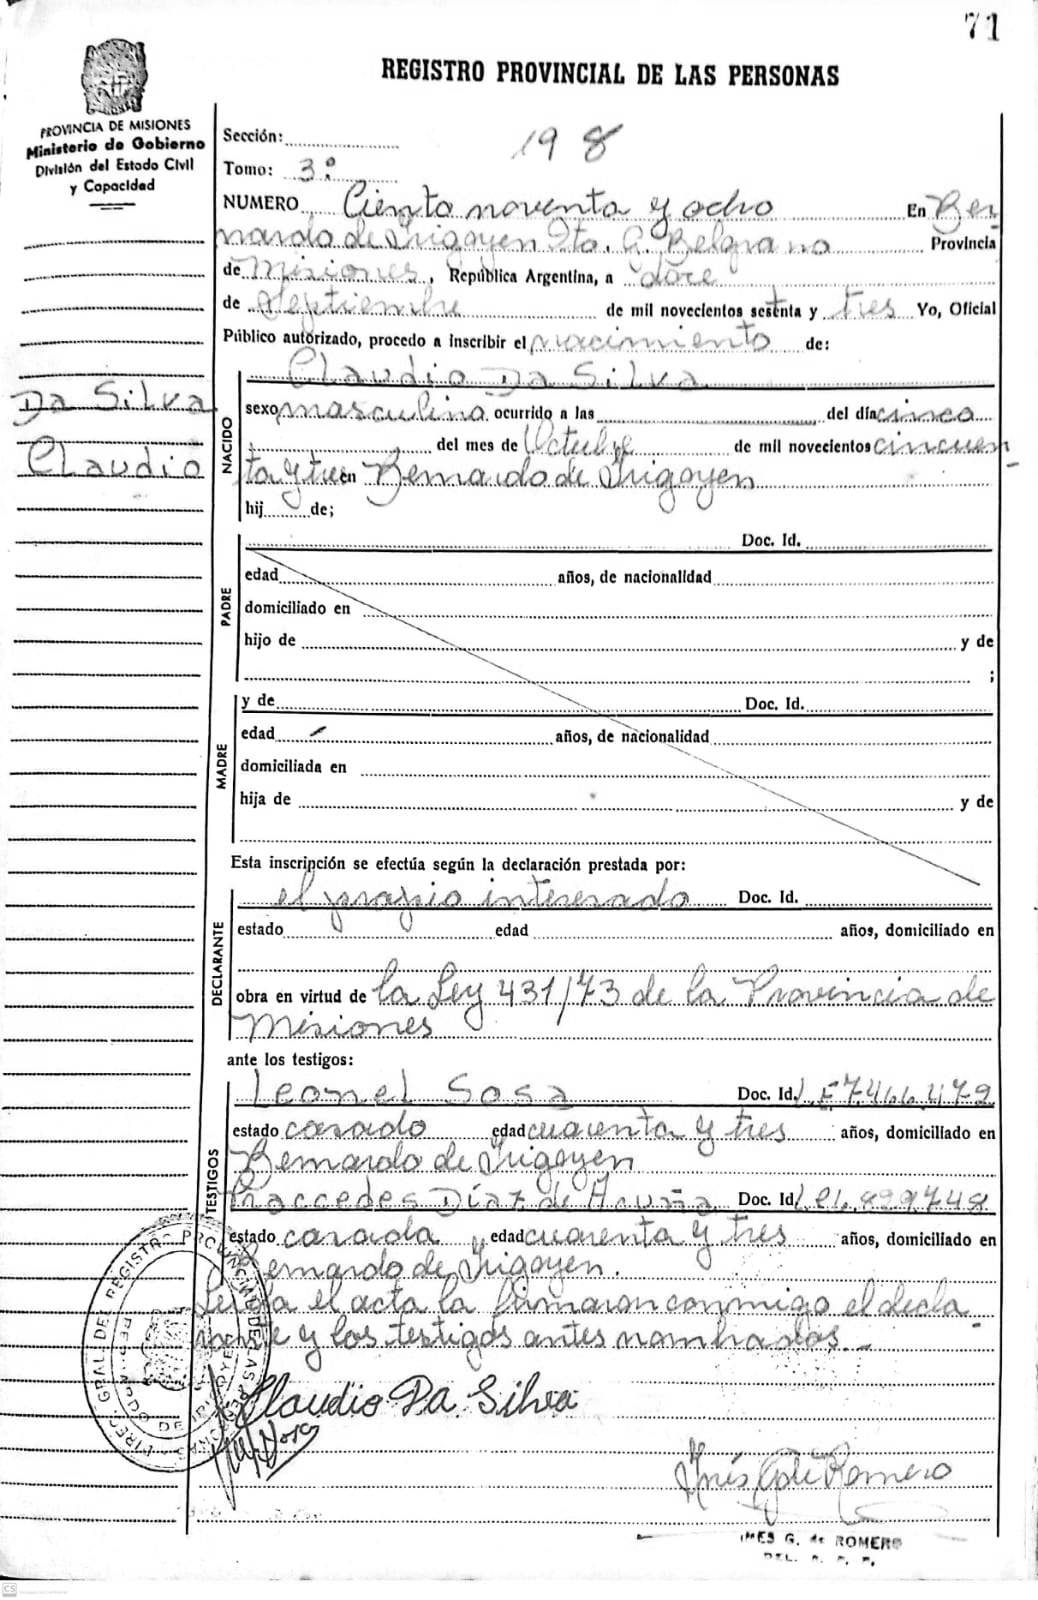 71
REGISTRO PROVINCIAL DE LAS PERSONAS
PROVINCIA DE MISIONES
Ministerio de Gobierno
División del Estado Civil
y Capacidad
Sección:
198
Tomo: 3º
NUMERO Ciento noventa y ocho En Ber
nardo de Irigoyen Dto. G. Belgrano Provincia
de Misiones, República Argentina, a doce
de Septiembre de mil novecientos setenta y tres Yo, Oficial
Público autorizado, procedo a inscribir el nacimiento de:
Claudio Da Silva
Da Silva
Claudio
NACIDO
sexo masculino ocurrido a las del día cinco
del mes de Octubre de mil novecientos cincuen-
ta y tres en Bernardo de Irigoyen
hij de;
PADRE
Doc. Id.
edad años, de nacionalidad
domiciliado en
hijo de y de
;
MADRE
y de Doc. Id.
edad años, de nacionalidad
domiciliada en
hija de y de
Esta inscripción se efectúa según la declaración prestada por:
DECLARANTE
el propio interesado Doc. Id.
estado edad años, domiciliado en
obra en virtud de la Ley 431/73 de la Provincia de
Misiones
ante los testigos:
TESTIGOS
Leonel Sosa Doc. Id. L.E 7.466.479
estado casado edad cuarenta y tres años, domiciliado en
Bernardo de Irigoyen
Praccedes Díaz de Acuña Doc. Id.
estado casada edad cuarenta y tres años, domiciliado en
Bernardo de Irigoyen.
Leída el acta la firmaron conmigo el decla
rante y los testigos antes nombrados.
Claudio Da Silva
Inés G de Romero
INES G. de ROMERO
DEL. R. P. P.
DIREC. GRAL DEL REGISTRO PROVINCIAL DE LAS PERSONAS
CS